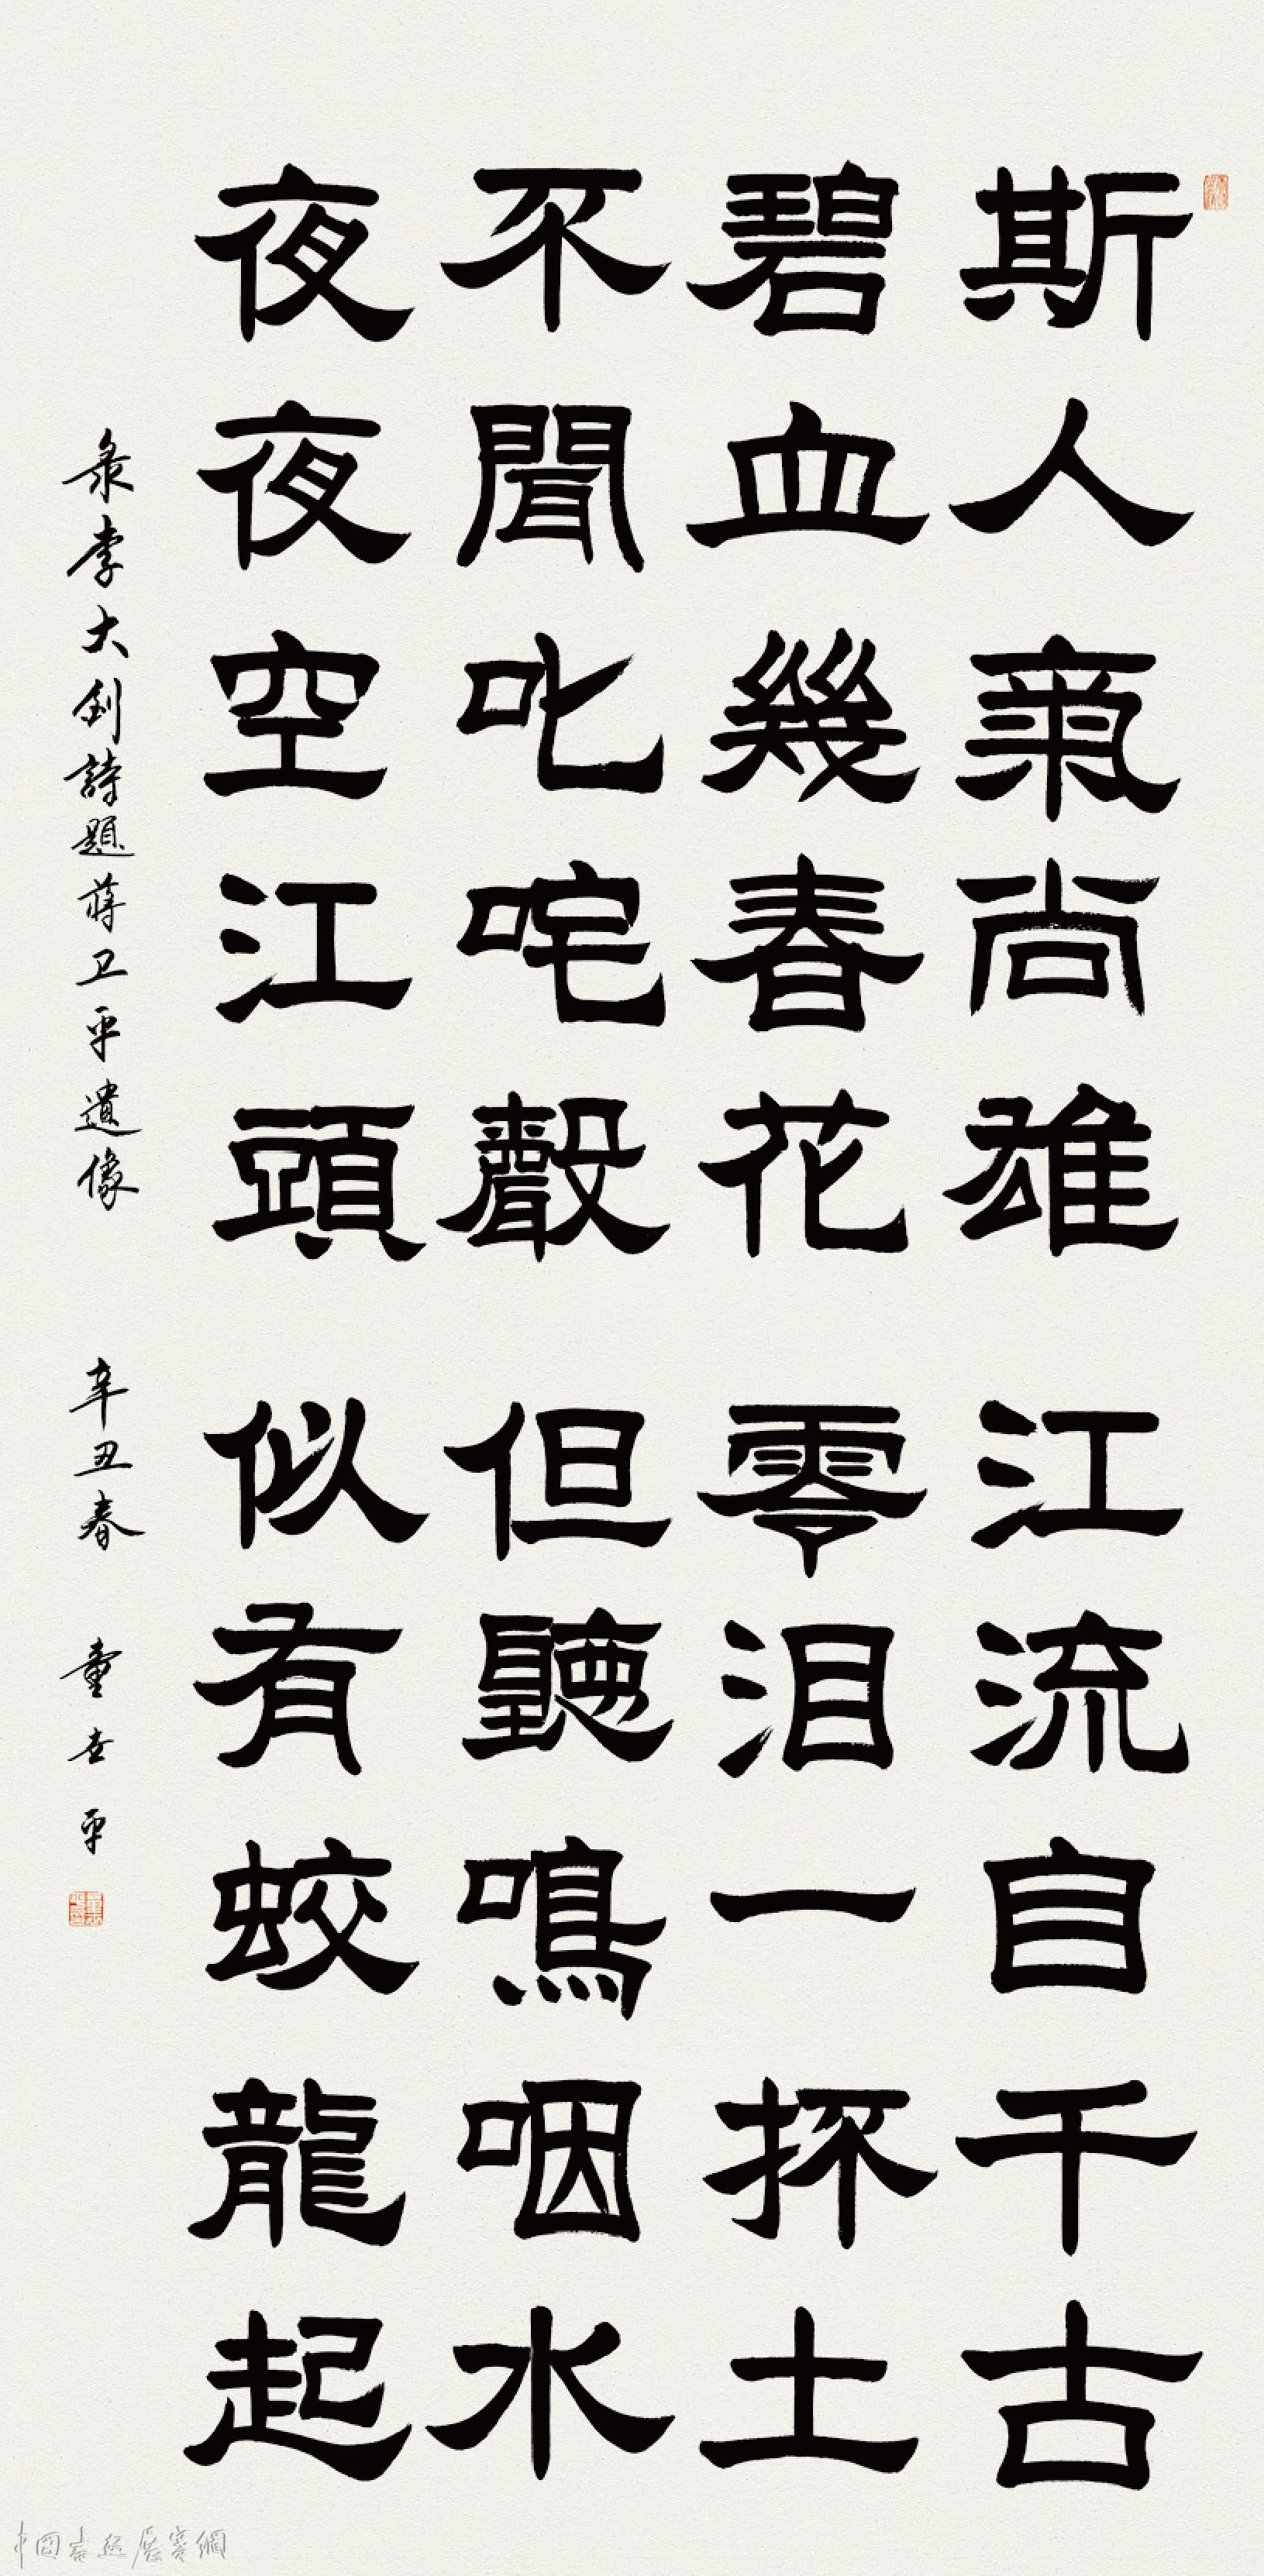 斯人氣尚雄江流自千古
碧血幾春花零泪一抔土
不聞叱咤聲但聽鳴咽水
夜夜空江頭似有蛟龍起
录李大釗詩題蔣卫平遺像 辛丑春 童世平
中國書法展賽網